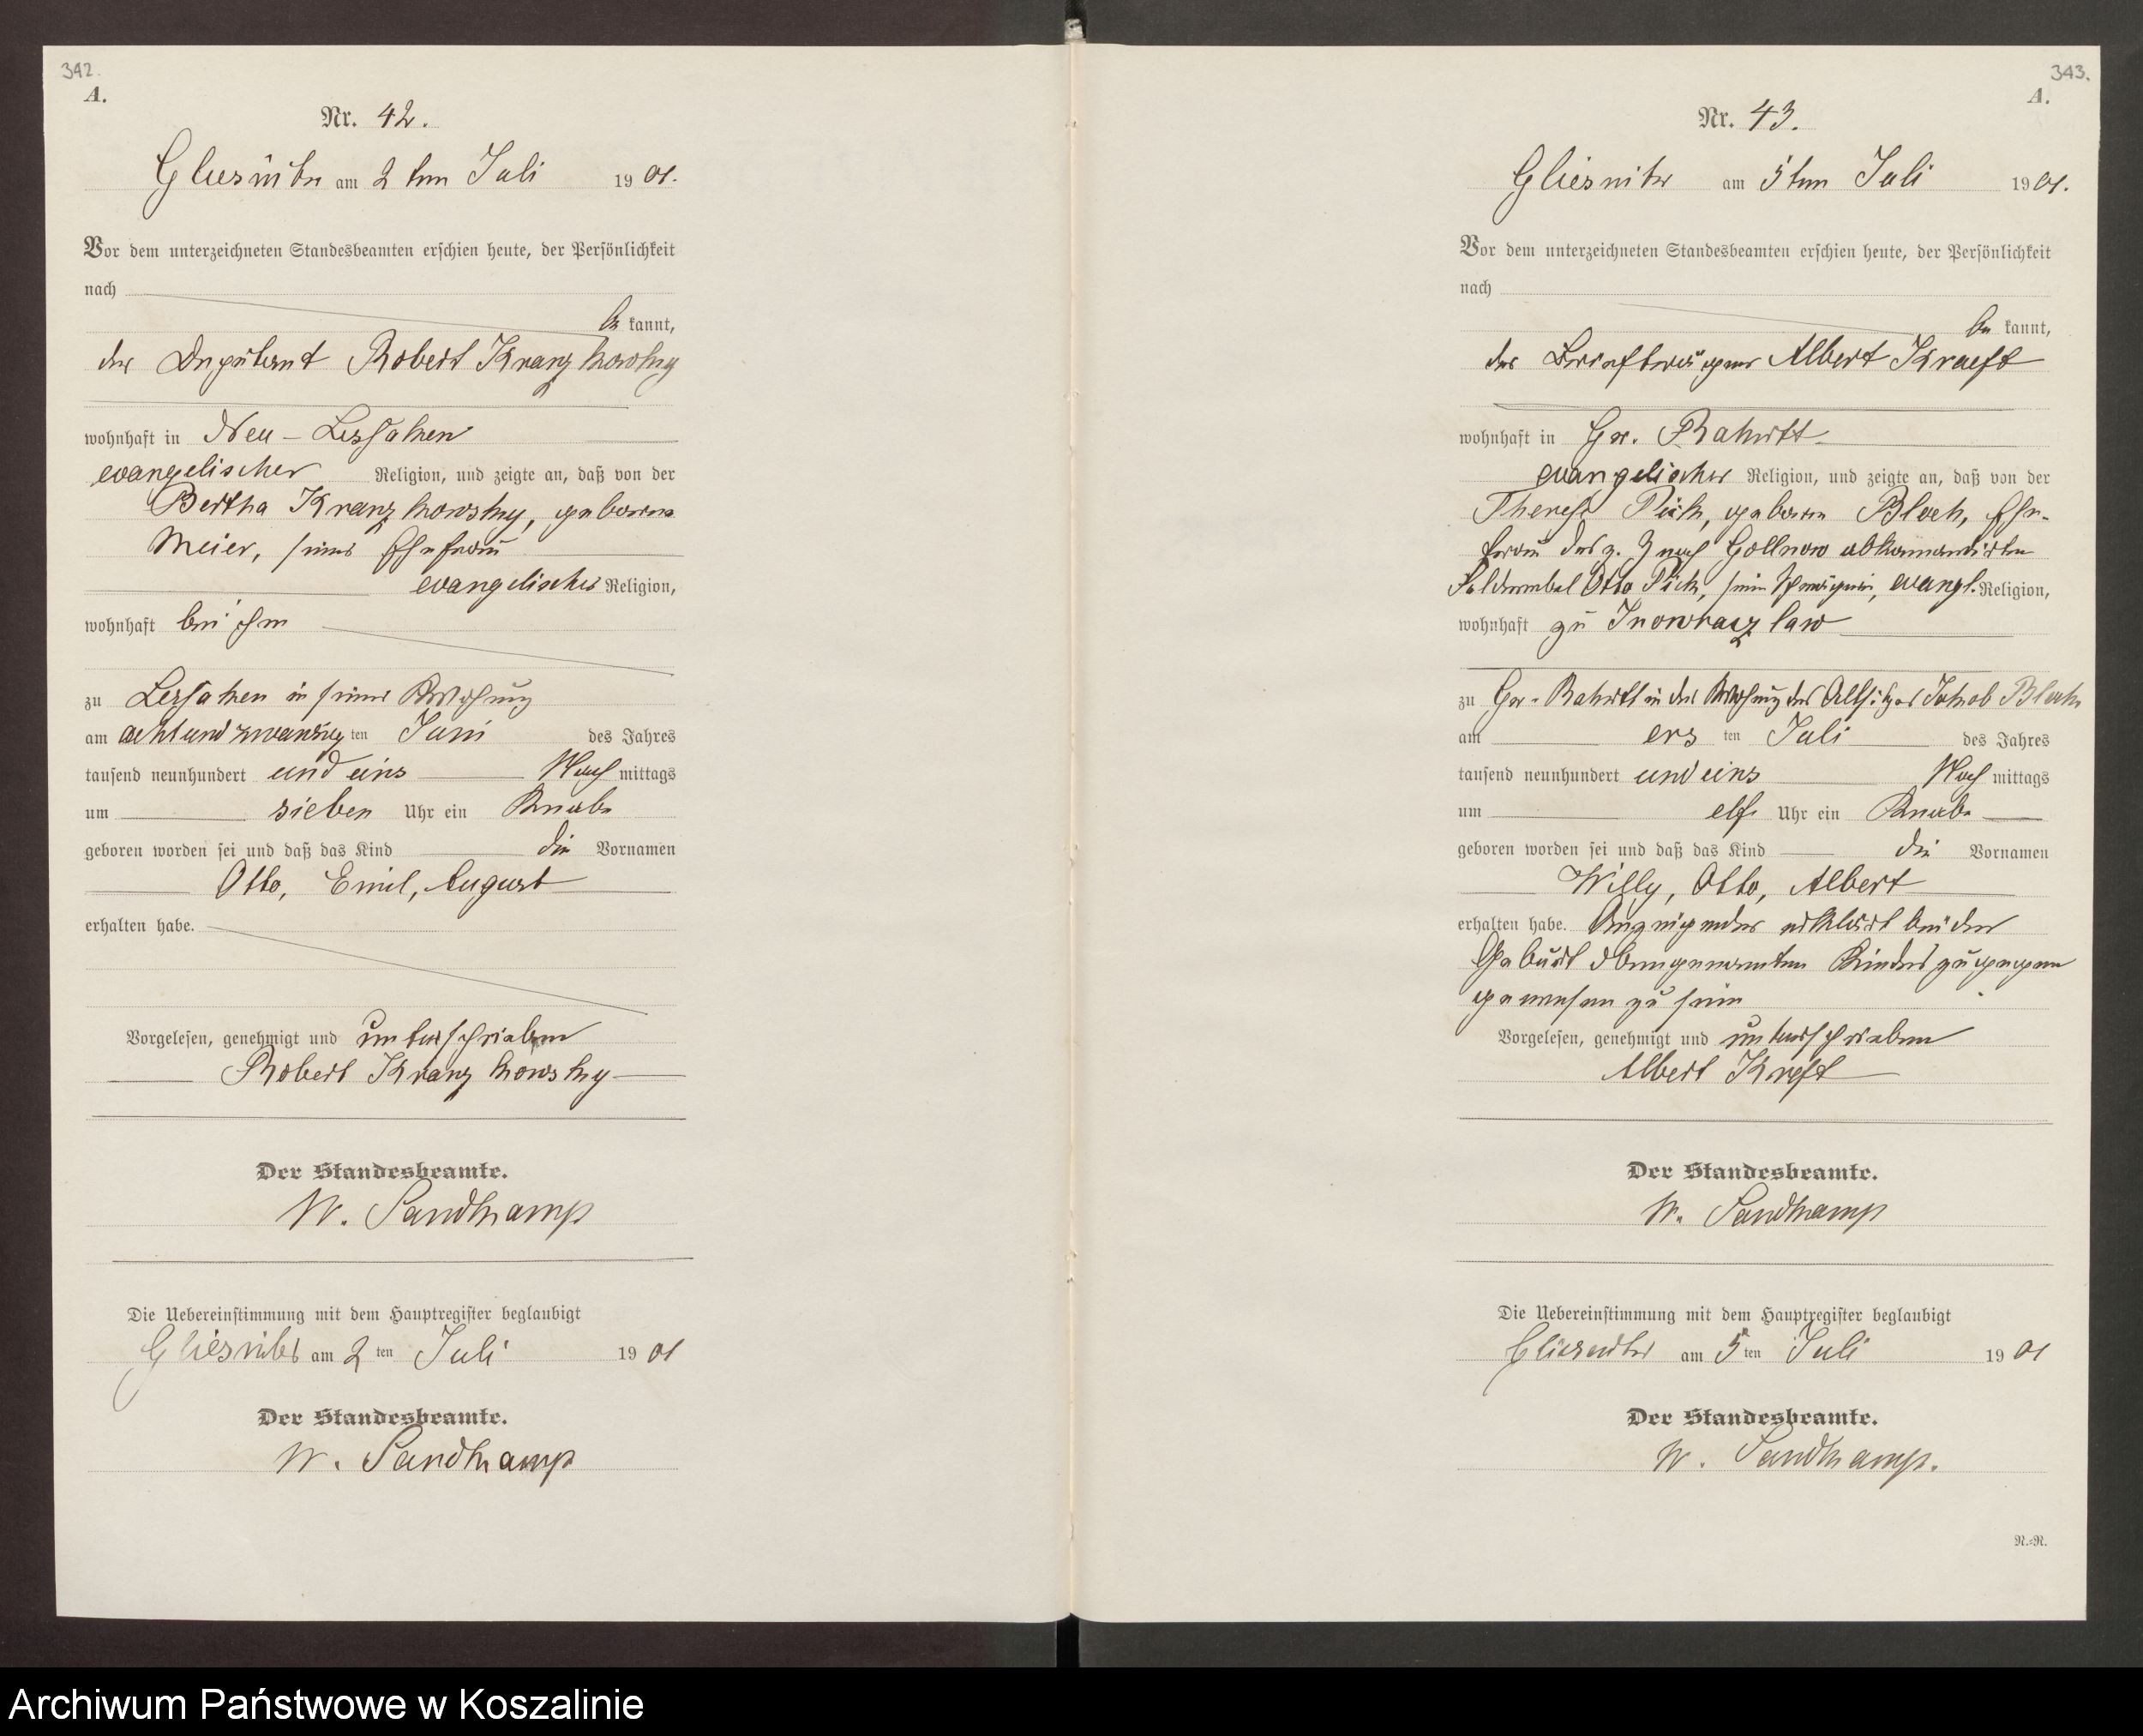 342.
A.
Nr. 42.
Gliesnitz am 2ten Juli 1901.
Vor dem unterzeichneten Standesbeamten erschien heute, der Persönlichkeit
nach
be kannt,
der Deputant Robert Kranzkowsky
wohnhaft in Neu-Lessaken
evangelischer Religion, und zeigte an, daß von der
Bertha Kranzkowsky, geborene
Meier, seiner Ehefrau
evangelischer Religion,
wohnhaft bei ihm
zu Lessaken in seiner Wohnung
am achtundzwanzigten Juni des Jahres
tausend neunhundert und eins Nachmittags
um sieben Uhr ein Knabe
geboren worden sei und daß das Kind die Vornamen
Otto, Emil, August
erhalten habe.
Vorgelesen, genehmigt und unterschrieben
Robert Kranzkowsky
Der Standesbeamte.
W. Sandkamp
Die Uebereinstimmung mit dem Hauptregister beglaubigt
Gliesnitz am 2ten Juli 1901
Der Standesbeamte.
W. Sandkamp
343.
A.
Nr. 43.
Gliesnitz am 5ten Juli 1901.
Vor dem unterzeichneten Standesbeamten erschien heute, der Persönlichkeit
nach
be kannt,
der Briefträger Albert Kraeft
wohnhaft in Gr. Rakitt
evangelischer Religion, und zeigte an, daß von der
Therese Pieh, geboren Bloch, Ehe-
frau des z. Z nach Gollnow abkommandirten
Feldwebel Otto seine Schwägerin, evangl. Religion,
wohnhaft zu Inowrazlaw
zu Gr. Rakitt in der Wohnung des Altsitzer Jakob Bloch
am ersten Juli des Jahres
tausend neunhundert und eins Nachmittags
um elf Uhr ein Knabe
geboren worden sei und daß das Kind die Vornamen
Willy, Otto, Albert
erhalten habe. Anzeigender erklärt bei der
Geburt obengenannten Kindes zugegen
gewesen zu sein
Vorgelesen, genehmigt und unterschrieben
Albert Kreft
Der Standesbeamte.
W. Sandkamp
Die Uebereinstimmung mit dem Hauptregister beglaubigt
Gliesnitz am 5ten Juli 1901
Der Standesbeamte.
W. Sandkamp.
R.=R.
Archiwum Państwowe w Koszalinie